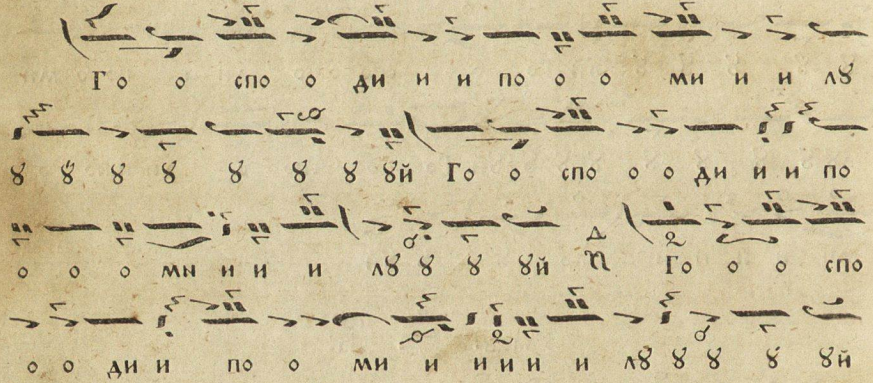 Го о спо о ди и и по о о ми и и лꙋ
ꙋ ꙋ ꙋ ꙋ ꙋ ꙋ ꙋ ꙋй Го о спо о о ди и и по
о о о мы и и и лꙋ ꙋ ꙋ ꙋй Го о о спо
о о ди и по о ми и и и и и лꙋ ꙋ ꙋ ꙋ ꙋй